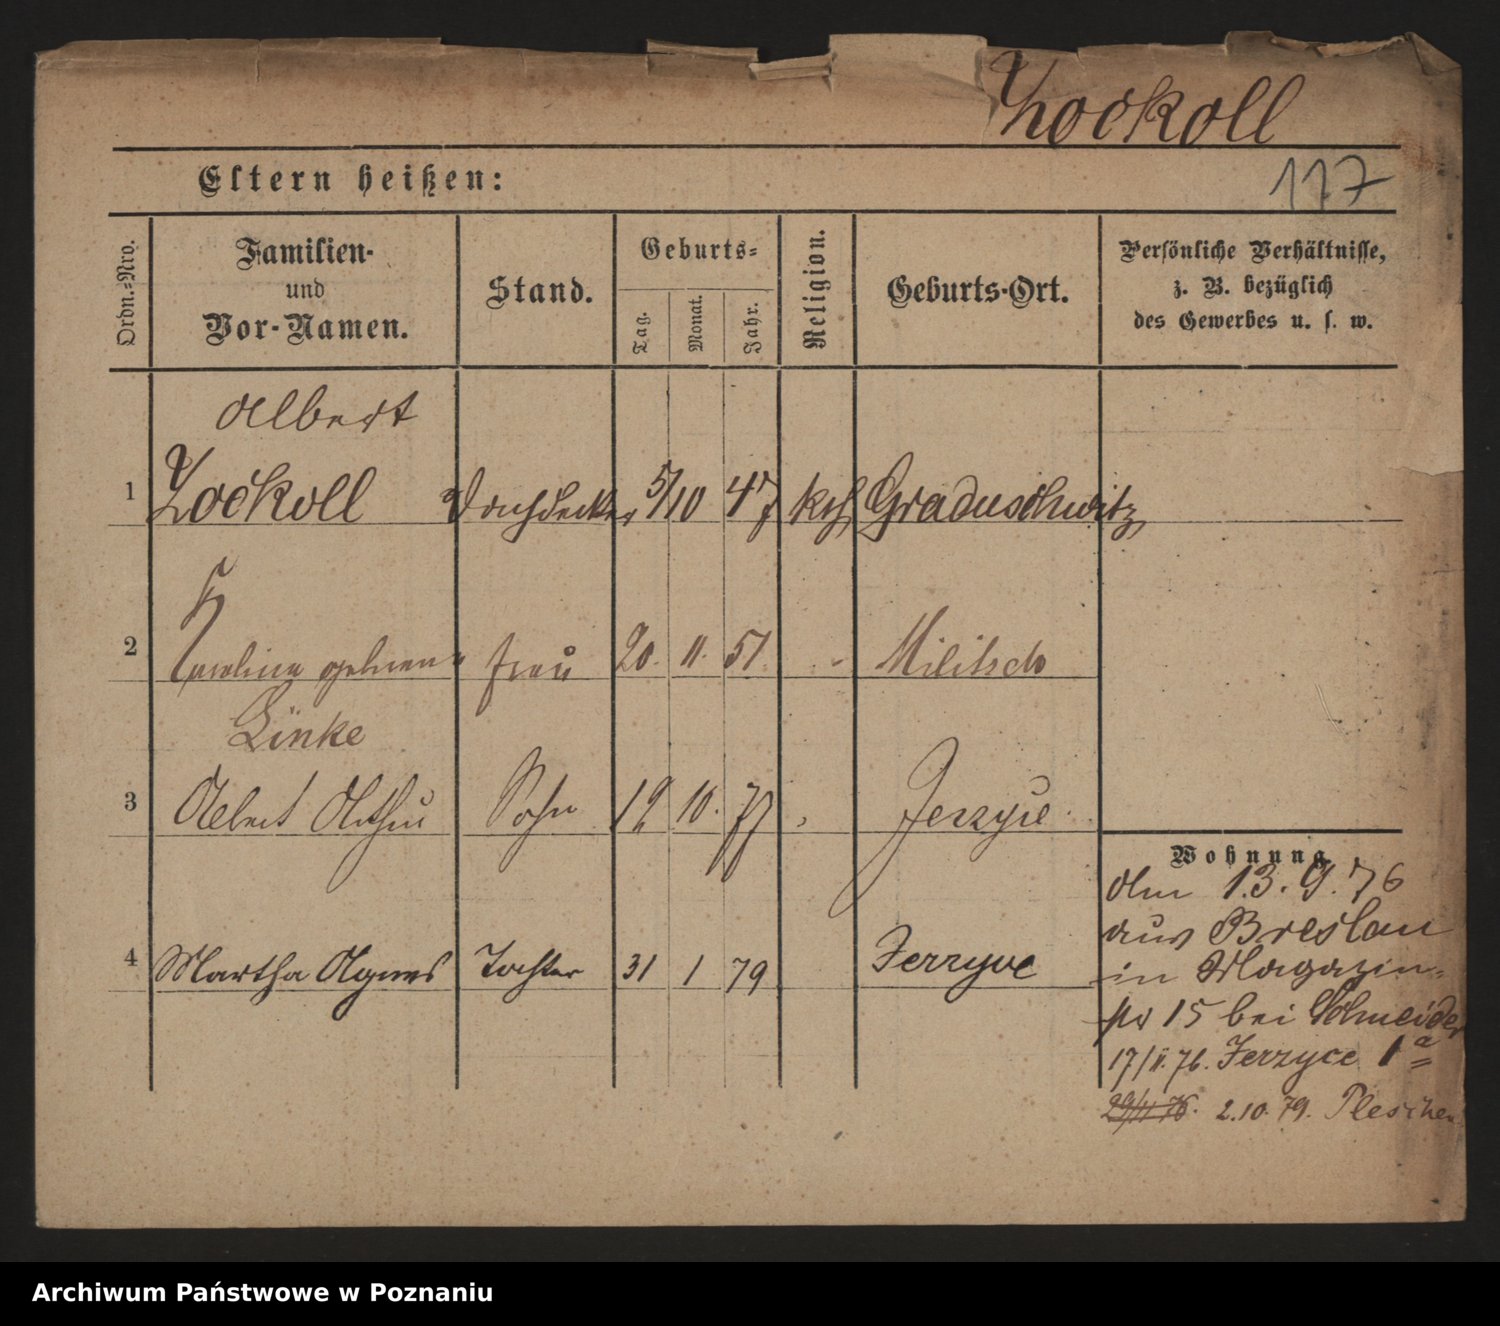 Zockoll
117
Eltern heißen:
Ordn.-Nro.
Familien-
und
Vor-Namen.
Stand.
Geburts-
Tag.
Monat.
Jahr.
Religion.
Geburts-Ort.
Persönliche Verhältnisse,
z. B. bezüglich
des Gewerbes u. s. w.
Albert
1 Zockoll Dachdecker 5/10 47 kth Graduschwitz
2 Karoline geborene Frau 20. 11. 51 Militsch
Linke
3 Albert Arthur Sohn 19 10. 77 Jerzyce
4 Martha Agnes Tochter 31 1 79 Jerzyce
Wohnung
Am 13. 9. 76
aus Breslau
in Magazin-
str 15 bei Schneider
17/11. 76. Jerzyce 1a
29/11 76. 2.10.79. Pleschen
Archiwum Państwowe w Poznaniu